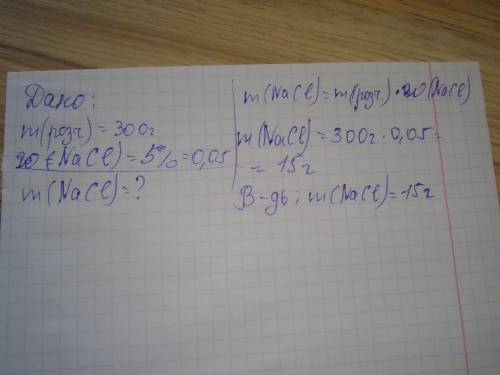 Дано:
m(розч) = 300г
w(NaCl) = 5% = 0,05
m(NaCl) = ?
m(NaCl) = m(розч.) · w(NaCl)
m(NaCl) = 300г · 0,05 =
= 15г
В-дь: m(NaCl) = 15г